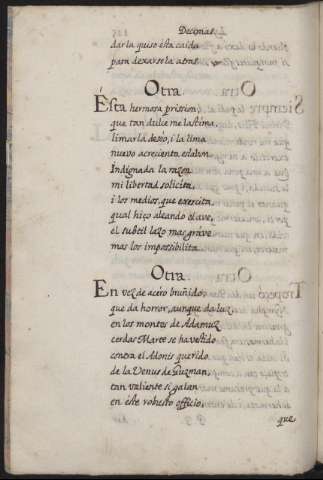 Decimas.
darla quiso esta caida
para dexarse la atras.
Otra
Esta hermosa prision,
que tan dulce me lastima,
limarla deseo, i la lima
nuevo acrecienta eslabon.
Indignada la razon
mi libertad solicita,
i los medios, que exercita
qual hiço aleando el ave,
el subtil lazo mas grave
mas los impossibilita.
Otra.
En vez de acero bruñido,
que da horror, aunque da luz,
en los montes de Adamuz
cerdas Marte se ha vestido
contra el Adonis querido
de la Venus de Guzman,
tan valiente, si galan
en este robusto officio,
que